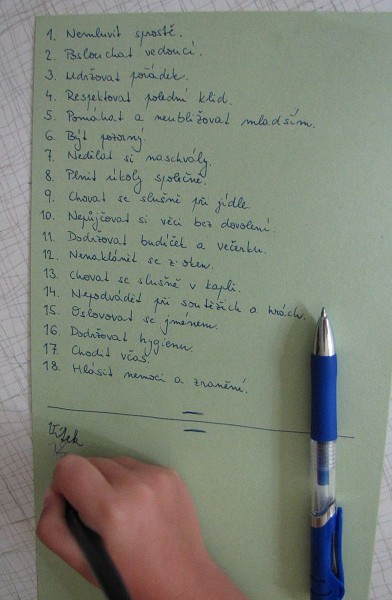 1. Nemluvit sprostě.
2. Poslouchat vedoucí.
3. Udržovat pořádek.
4. Respektovat polední klid.
5. Pomáhat a neubližovat mladším.
6. Být pozorný.
7. Nedělat si naschvály.
8. Plnit úkoly společně.
9. Chovat se slušně při jídle
10. Nepůjčovat si věci bez dovolení
11. Dodržovat budíček a večerku.
12. Nenaklánět se z oken.
13. Chovat se slušně v kapli.
14. Nepodvádět při soutěžích a hrách.
15. Oslovovat se jménem.
16. Dodržovat hygienu.
17. Chodit včas.
18. Hlásit nemoci a zranění.